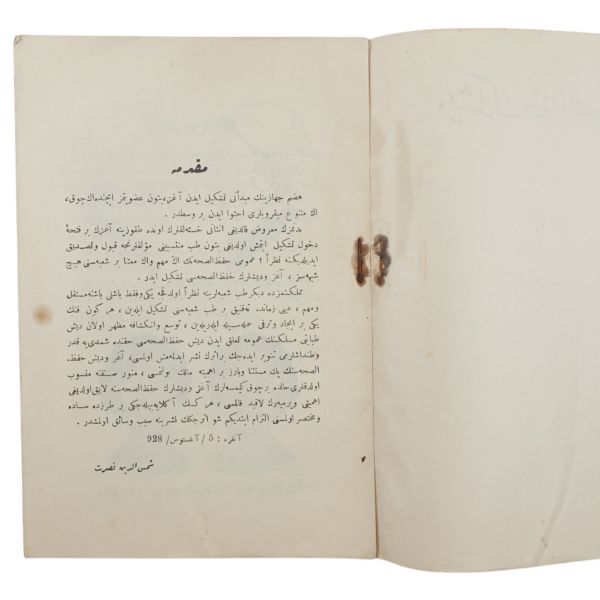 مقدمه
هضم جهازينك ميدأنى تشكيل ايدن آغز، بتون عضولرمز ايچنده اك چوق،
اك متنوع ميقروبلرى احتوا ايدن بر وسطدر.
بدنمزك معروض قالديغى انتانى خسته‌لقلرك اونده طقوزينه آغزك بر فتحهٔ
دخول تشكيل ايتمش اولديغى بتون طب منتسبينى مؤلفلرنجه قبول وتصديق
ايديلديكنه نظراً؛ عمومى حفظ الصحه‌نك اك مهم واك معتنا بر شعبه‌سنى هيچ
شبهه‌سز، آغز وديشلرك حفظ الصحه‌سى تشكيل ايدر.
مملكتمزده ديكر طب شعبه‌لرينه نظراً اولدقجه يكى وفقط باشلى باشنه مستقل
ومهم، عينى زمانده تدقيق بر طب شعبه‌سى تشكيل ايله‌ين، هر كون فنك
يكى بر ايجاد وترقى حمله‌سيله ايلريله‌ين، توسع وانكشافه مظهر اولان ديش
طبابتى مسلكنك عمومه تعلق ايدن ديش حفظ الصحه‌سى حقنده شمدى‌يه قدر
وطنداشلرمى تنوير ايده‌جك بر اثرك نشر ايدلمه‌مش اولمسى، آغز وديش حفظ‌
الصحه‌سنك پك مستثنا وبارز بر اهميته مالك بولنمسى، منور صنفنه منسوب
اولدقلرى حالده بر چوق كيمسه‌لرك آغز وديشلرك حفظ الصحه‌سنه لايق اولديغى
اهميتى ويرميه‌رك لاقيد قالمسى، هر كسك آكلايه‌بيله‌جكى بر طرزده ساده
ومختصر اولمسنى التزام ايتديكم شو اثرجكك نشرينه سبب وسائق اولمشدر.
آنقره: 5 / آغستوس / 928
شمس الدين نصرت